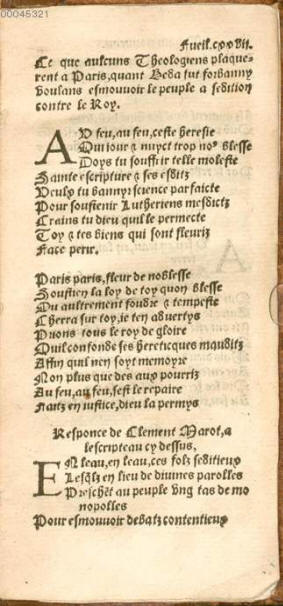 00045321
Fueil.cxxvii.
Ce que aulcuns Theologiens plaque-
rent a Paris, quant Beda fut forbanny
voulans esmouuoir le peuple a sedition
contre le Roy.
AV feu, au feu, ceste heresie
Qui iour & nuyct trop noꝰ blesse
Doys tu souffrir telle moleste
Saincte escripture & ses esditz
Veulx tu bannyr science parfaicte
Pour soustenir Lutheriens mesdictz
Crains tu dieu quil le permecte
Toy & tes biens qui sont fleuriz
Face perir.
Paris paris, fleur de noblesse
Soustien la loy de toy quon blesse
Ou aultrement fouldre & tempeste
Cherra sur toy, ie ten aduertys
Prions tous le roy de gloire
Quil confonde ses hereticques mauditz
Affin quil nen soyt memoyre
Non plus que des aux pourriz
Au feu, au feu, sest le repaire
Faitz en iustice, dieu la permys
Responce de Clement Marot, a
lescripteau cy dessus.
EN leau, en leau, ces folz seditieux
Lesq̃lz en lieu de diuines parolles
Preschẽt au peuple vng tas de mo
nopolles
Pour esmouuoir debatz contentieux